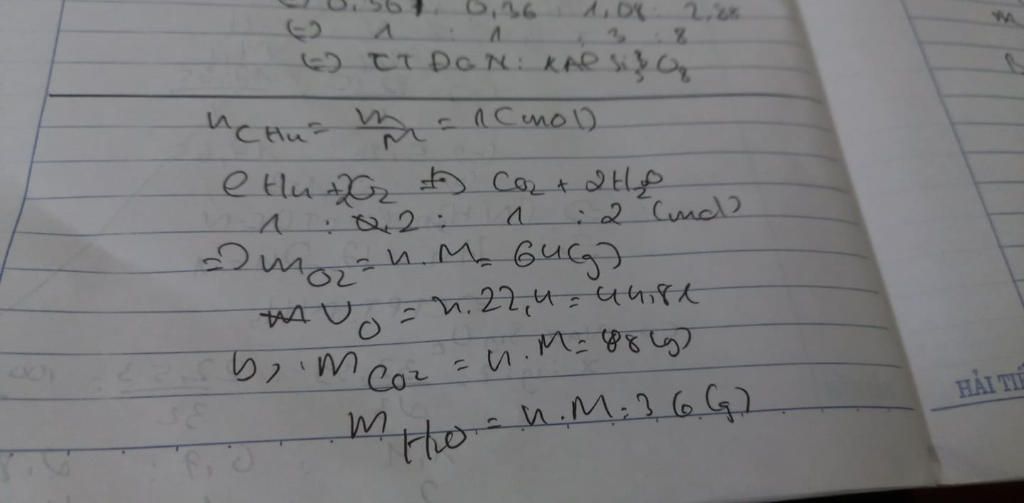 (=) 0,36 : 0,36 : 1,08 : 2,88
(=) 1 : 1 : 3 : 8
(=) CTDGN: KAlSi3O8
nCH4 = m/M = 1(mol)
CH4 + 2O2 → CO2 + 2H2O
1 : 2 : 1 : 2 (mol)
=) mO2 = n.M = 64(g)
VO = n.22,4 = 44,8l
b, mCO2 = n.M = 88(g)
mH2O = n.M = 36(g)
HẢI TIẾ